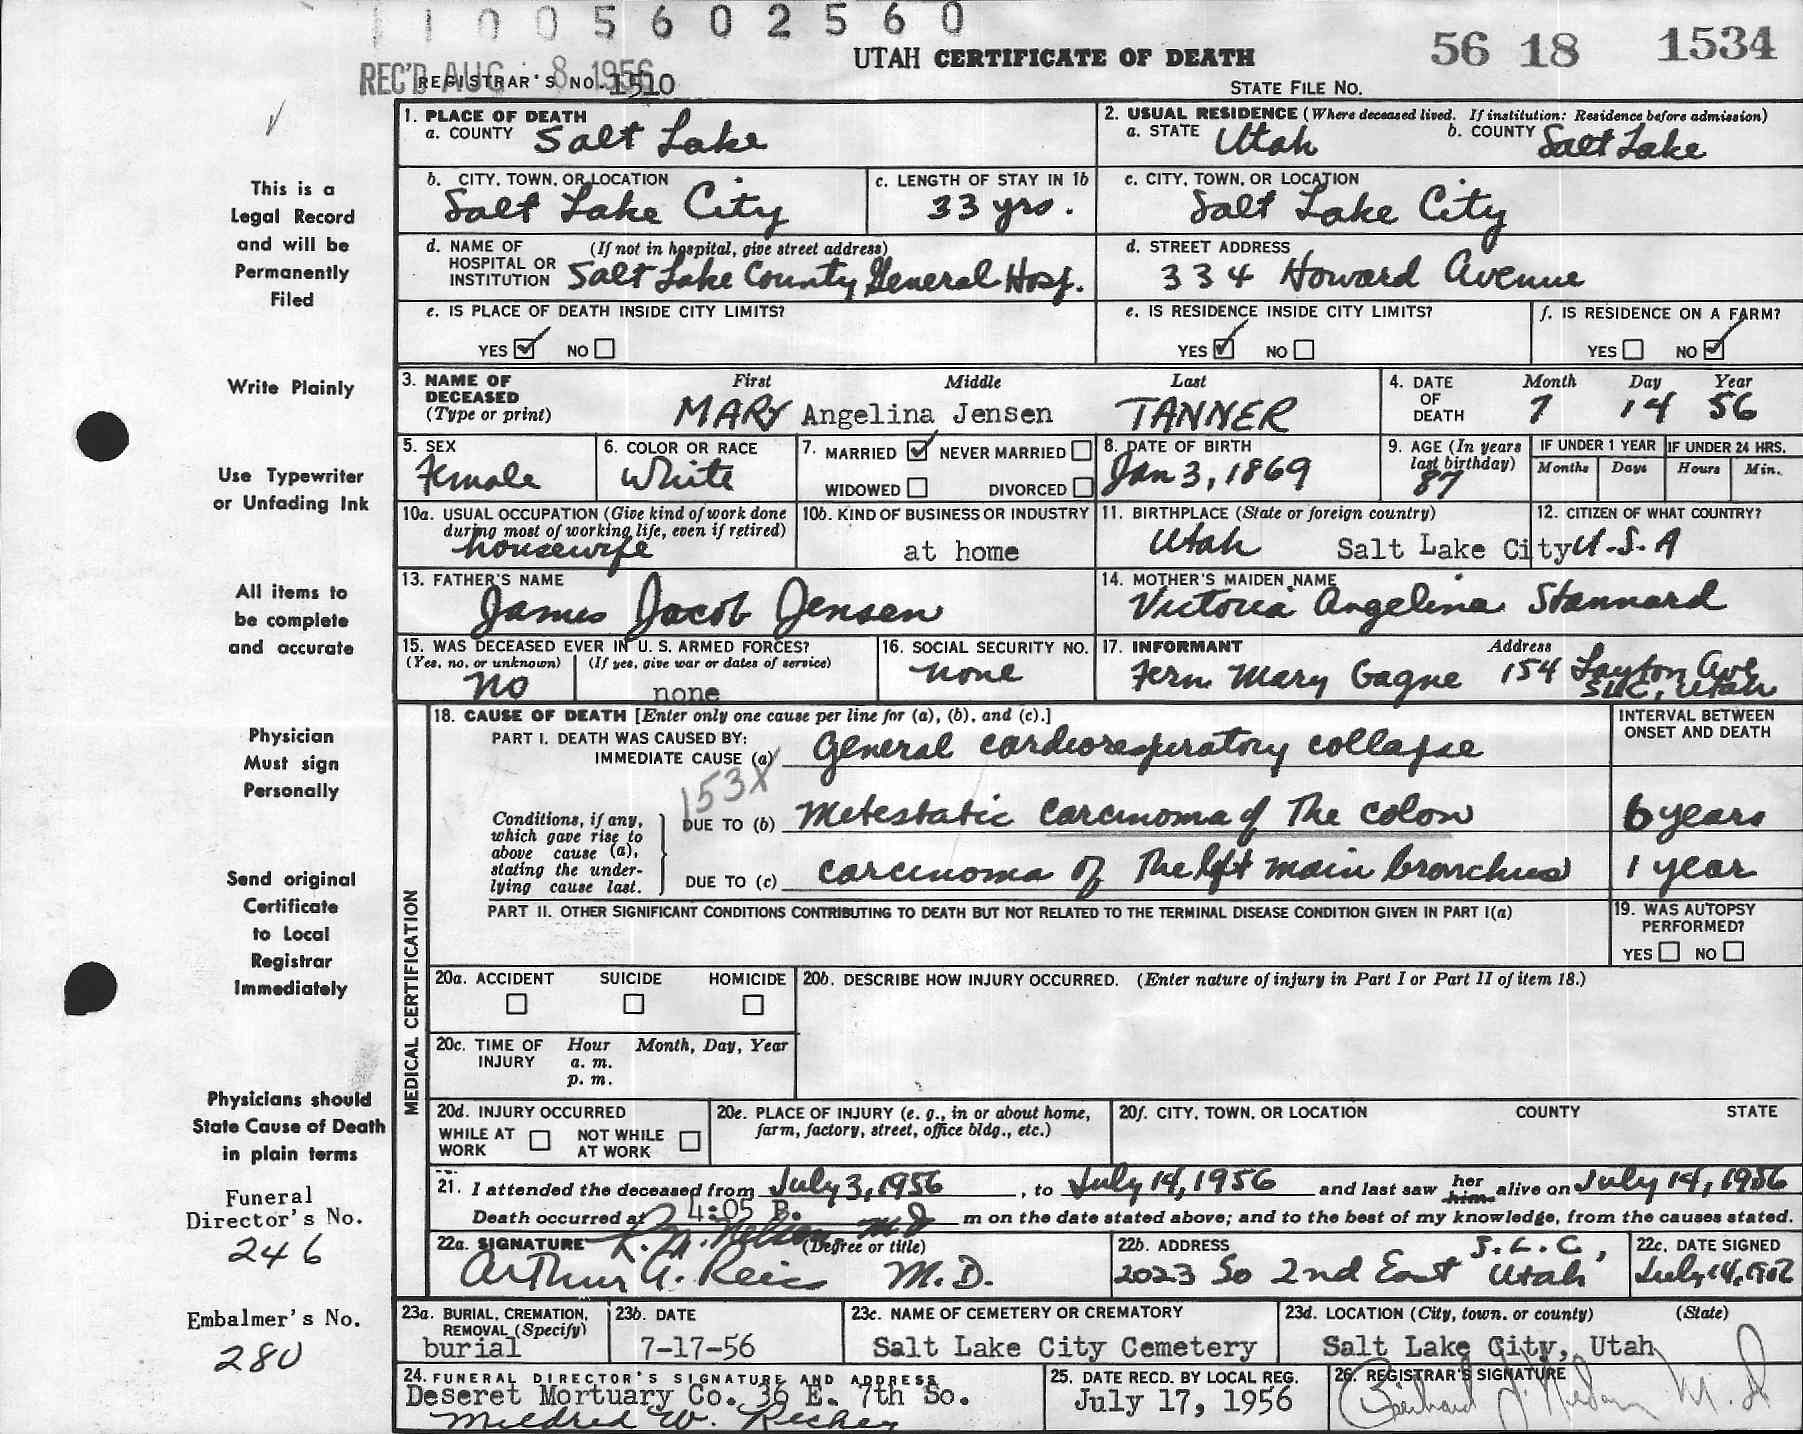 1 1 0 0 5 6 0 2 5 6 0
UTAH CERTIFICATE OF DEATH
56 18 1534
REC'D AUG 8 1956
REGISTRAR'S NO. 1510
STATE FILE NO.
This is a
Legal Record
and will be
Permanently
Filed
Write Plainly
Use Typewriter
or Unfading Ink
All items to
be complete
and accurate
Physician
Must sign
Personally
Send original
Certificate
to Local
Registrar
Immediately
Physicians should
State Cause of Death
in plain terms
Funeral
Director's No.
246
Embalmer's No.
280
1. PLACE OF DEATH
a. COUNTY Salt Lake
2. USUAL RESIDENCE (Where deceased lived. If institution: Residence before admission)
a. STATE Utah b. COUNTY Salt Lake
b. CITY, TOWN, OR LOCATION
Salt Lake City
c. LENGTH OF STAY IN 1b
33 yrs.
c. CITY, TOWN, OR LOCATION
Salt Lake City
d. NAME OF (If not in hospital, give street address)
HOSPITAL OR
INSTITUTION Salt Lake County General Hosp.
d. STREET ADDRESS
334 Howard Avenue
e. IS PLACE OF DEATH INSIDE CITY LIMITS?
YES NO
e. IS RESIDENCE INSIDE CITY LIMITS?
YES NO
f. IS RESIDENCE ON A FARM?
YES NO
3. NAME OF First Middle Last
DECEASED
(Type or print) MARY Angelina Jensen TANNER
4. DATE Month Day Year
OF
DEATH 7 14 56
5. SEX
Female
6. COLOR OR RACE
White
7. MARRIED NEVER MARRIED
WIDOWED DIVORCED
8. DATE OF BIRTH
Jan 3, 1869
9. AGE (In years
last birthday)
87
IF UNDER 1 YEAR
Months Days
IF UNDER 24 HRS.
Hours Min.
10a. USUAL OCCUPATION (Give kind of work done
during most of working life, even if retired)
housewife
10b. KIND OF BUSINESS OR INDUSTRY
at home
11. BIRTHPLACE (State or foreign country)
Utah Salt Lake City
12. CITIZEN OF WHAT COUNTRY?
U.S.A
13. FATHER'S NAME
James Jacob Jensen
14. MOTHER'S MAIDEN NAME
Victoria Angelina Stannard
15. WAS DECEASED EVER IN U. S. ARMED FORCES?
(Yes, no, or unknown) (If yes, give war or dates of service)
no none
16. SOCIAL SECURITY NO.
none
17. INFORMANT Address
Fern Mary Gagne 154 Layton Ave
SLC, Utah
MEDICAL CERTIFICATION
18. CAUSE OF DEATH [Enter only one cause per line for (a), (b), and (c).]
PART I. DEATH WAS CAUSED BY:
IMMEDIATE CAUSE (a) General cardiorespiratory collapse
INTERVAL BETWEEN
ONSET AND DEATH
153X
Conditions, if any,
which gave rise to
above cause (a),
stating the under-
lying cause last.
DUE TO (b) Metestatic Carcinoma of The colon 6 years
DUE TO (c) carcinoma of The left main bronchus 1 year
PART II. OTHER SIGNIFICANT CONDITIONS CONTRIBUTING TO DEATH BUT NOT RELATED TO THE TERMINAL DISEASE CONDITION GIVEN IN PART I(a)
19. WAS AUTOPSY
PERFORMED?
YES NO
20a. ACCIDENT SUICIDE HOMICIDE
20b. DESCRIBE HOW INJURY OCCURRED. (Enter nature of injury in Part I or Part II of item 18.)
20c. TIME OF Hour Month, Day, Year
INJURY a. m.
p. m.
20d. INJURY OCCURRED
WHILE AT NOT WHILE
WORK AT WORK
20e. PLACE OF INJURY (e. g., in or about home,
farm, factory, street, office bldg., etc.)
20f. CITY, TOWN, OR LOCATION COUNTY STATE
21. I attended the deceased from July 3, 1956, to July 14, 1956 and last saw her him alive on July 14, 1956
Death occurred at 4:05 P. m on the date stated above; and to the best of my knowledge, from the causes stated.
R. A. Nelson M.D
22a. SIGNATURE (Degree or title)
Arthur G. Reics M.D.
22b. ADDRESS S.L.C,
2023 So 2nd East Utah
22c. DATE SIGNED
July 14, 1956
23a. BURIAL, CREMATION,
REMOVAL (Specify)
burial
23b. DATE
7-17-56
23c. NAME OF CEMETERY OR CREMATORY
Salt Lake City Cemetery
23d. LOCATION (City, town, or county) (State)
Salt Lake City, Utah
24. FUNERAL DIRECTOR'S SIGNATURE AND ADDRESS
Deseret Mortuary Co. 36 E. 7th So.
Mildred W. Richey
25. DATE RECD. BY LOCAL REG.
July 17, 1956
26. REGISTRAR'S SIGNATURE
M.D